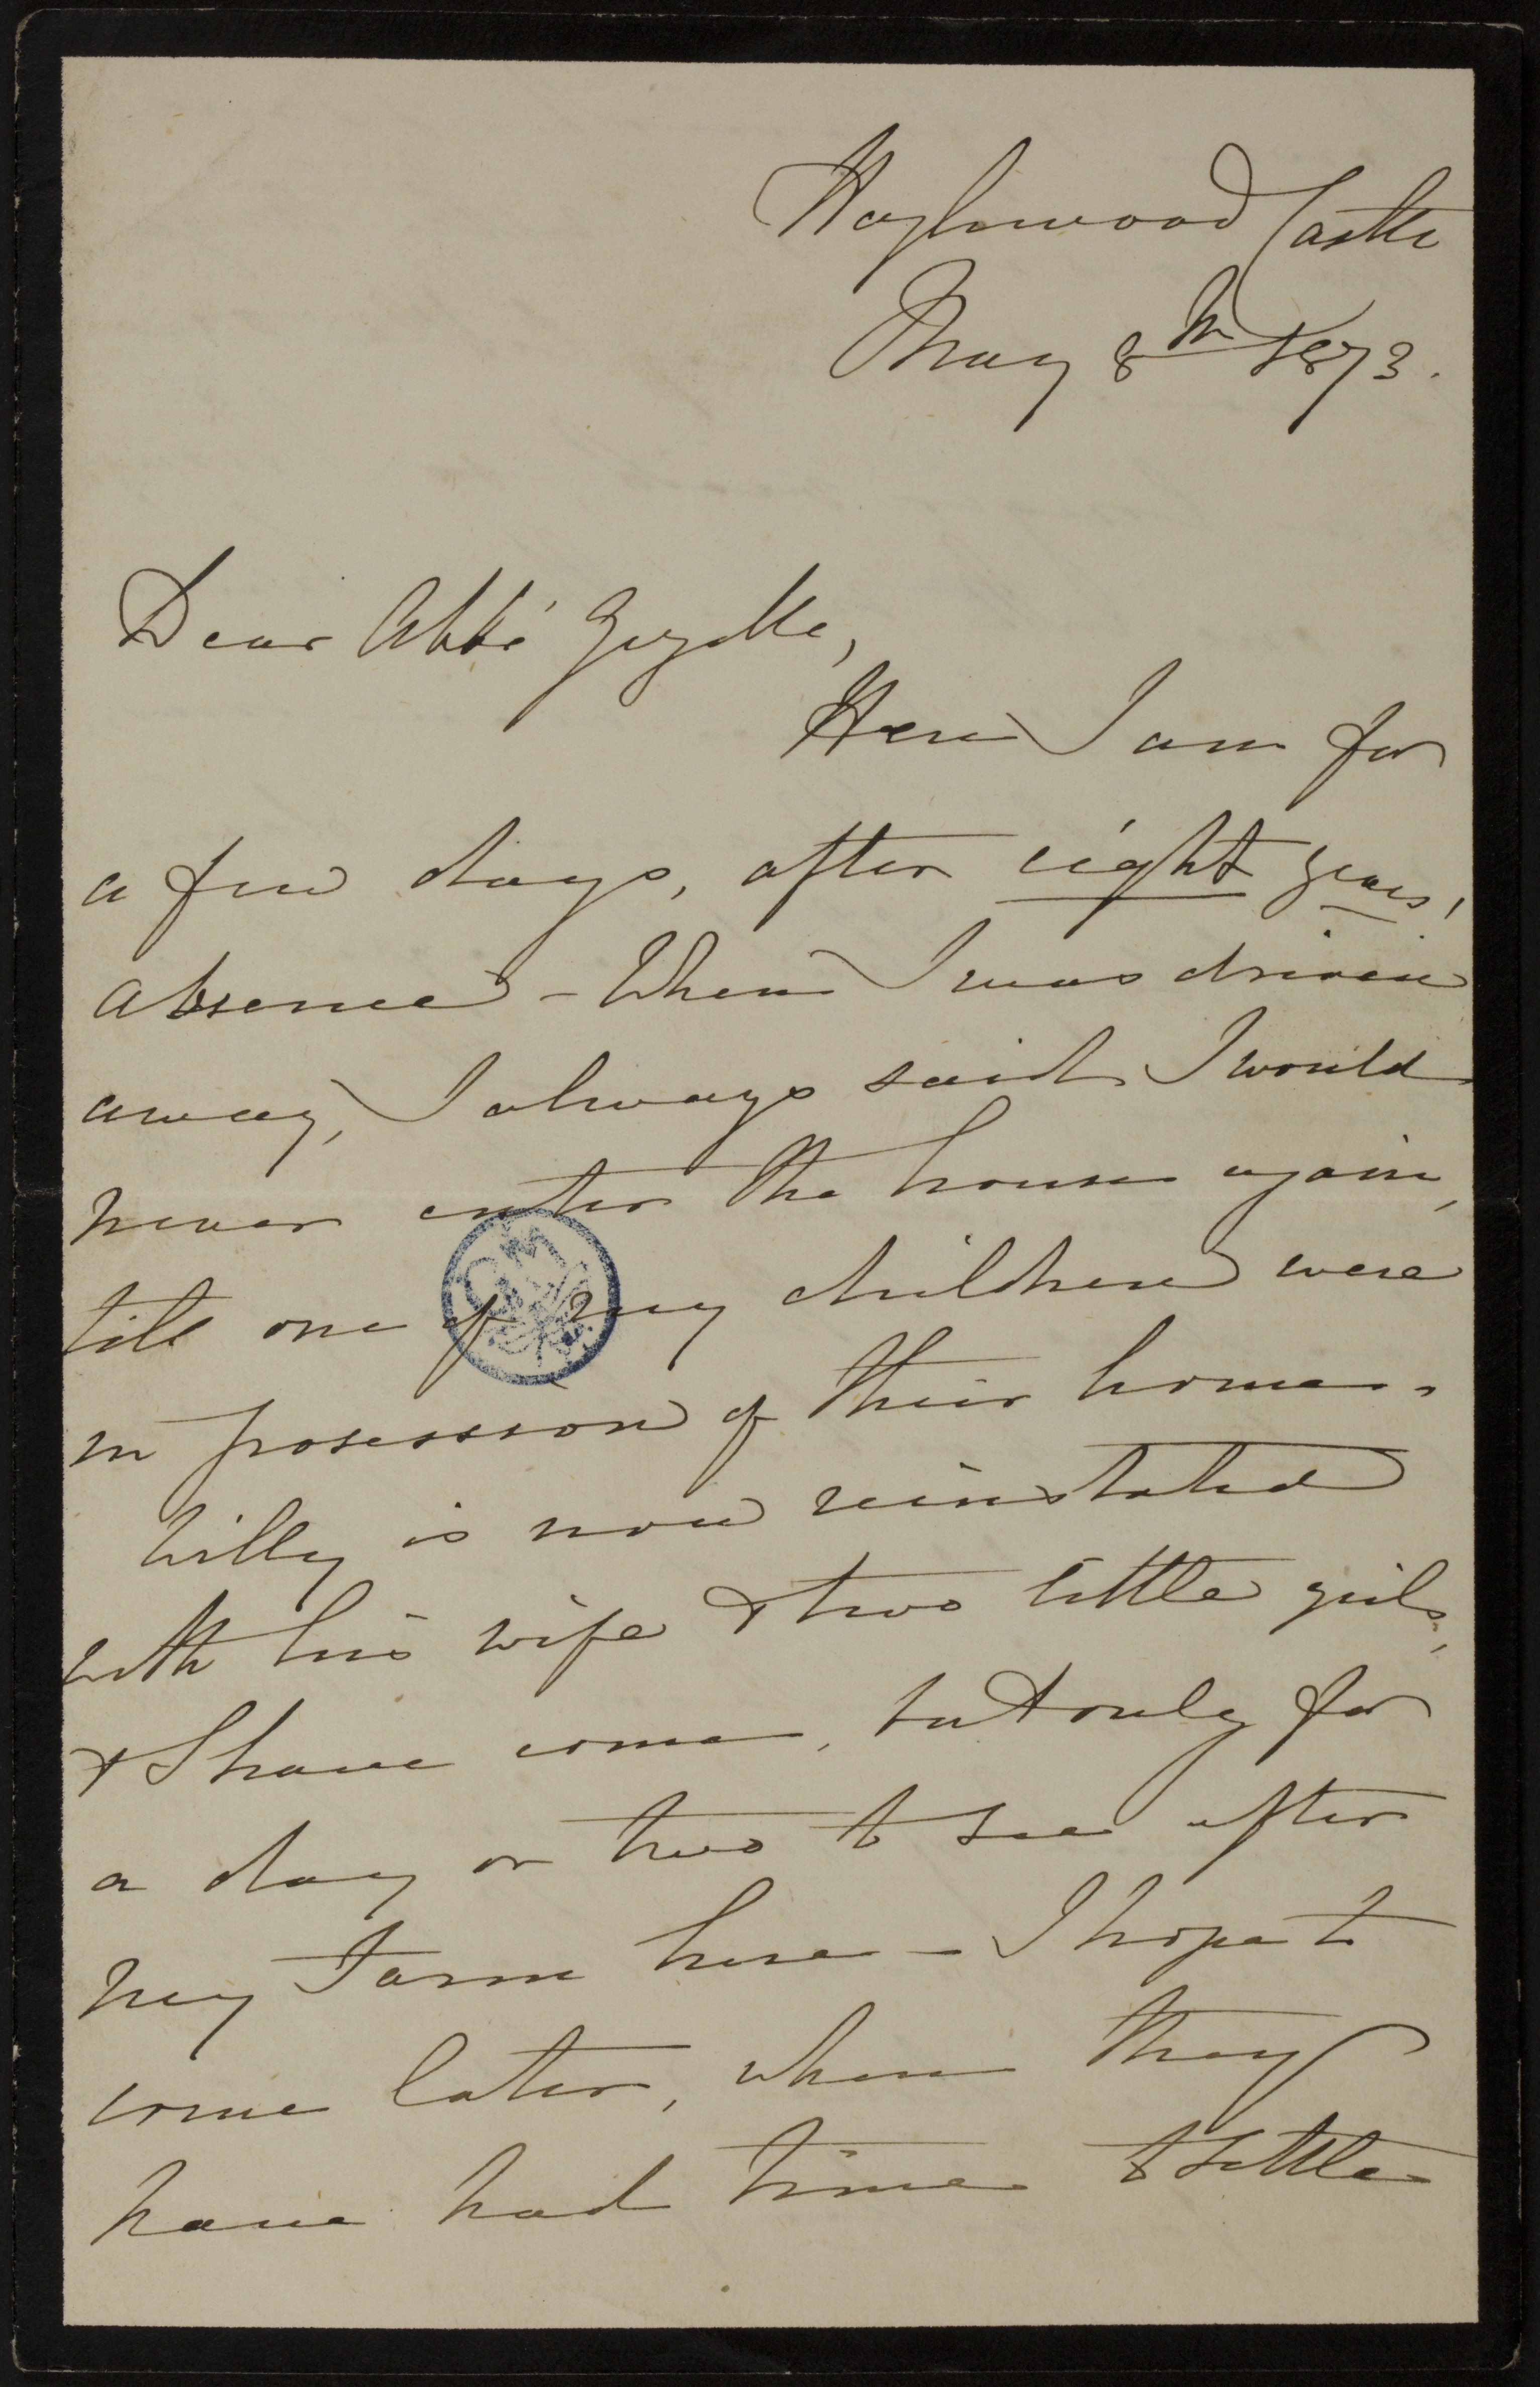 Haghnwood Castle
May 8th 1873.
Dear Abbé Gryelle,
Here I am for
a few days, after eight years'
absence - When I was driven
away, I always said I would
never enter the house again,
till one of my children were
in posession of their home.
Willy is now reinstated
with his wife & two little girls,
& I have come, but only for
a day or two to see after
my Farm here - I hope to
come later, when they
have had time to settle